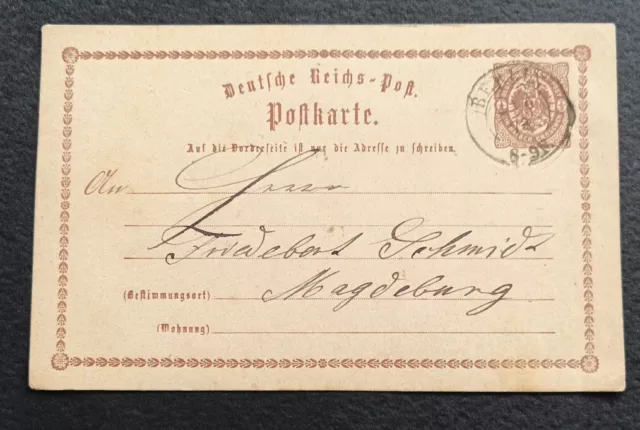 Deutsche Reichs-Post.
Postkarte.
Auf die Vorderseite ist nur die Adresse zu schreiben.
An Herrn
Friedebert Schmidt
(Bestimmungsort) Magdeburg
(Wohnung)